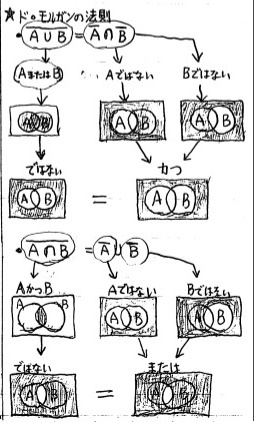 ★ド・モルガンの法則
・A∪B = A∩B
AまたはB Aではない Bではない
A B A B A B
ではない かつ
A B = A B
・A∩B = A∪B
AかつB Aではない Bではない
A B A B A B
ではない または
A B = A B